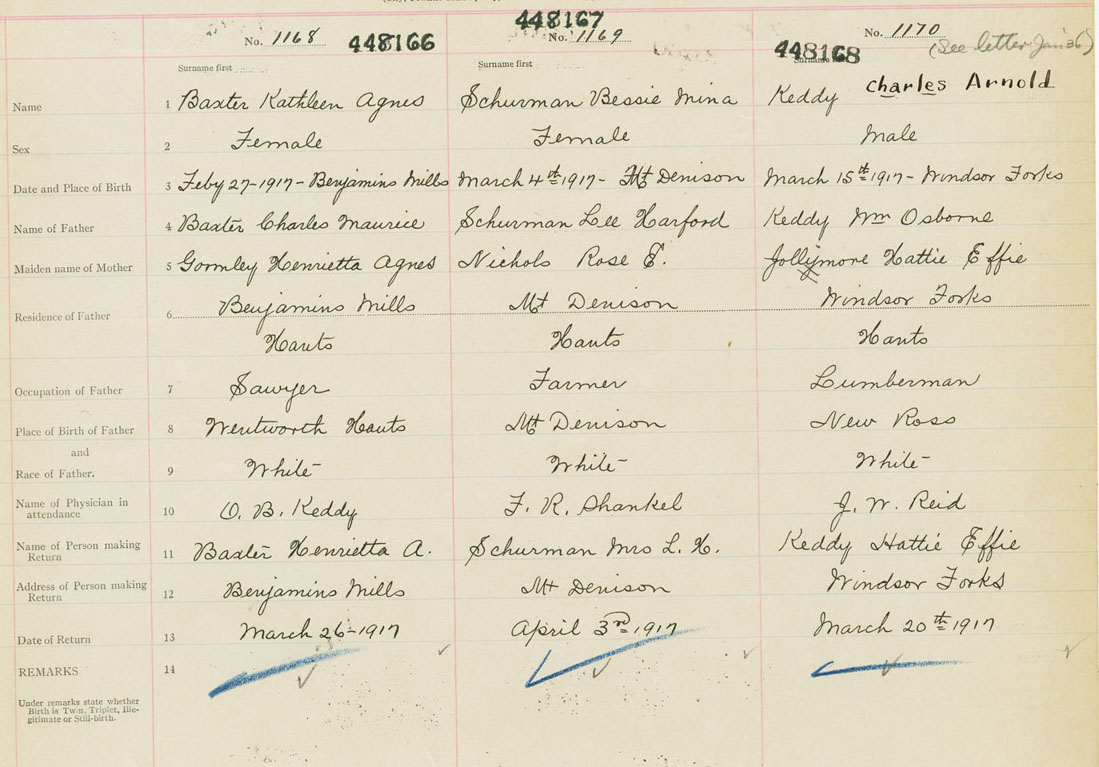 448167
No. 1168 448166 No. 1169 448168 No. 1170
(See letter Jan 36)
Surname first Surname first
Name 1 Baxter Kathleen Agnes Schurman Bessie Mina Keddy Charles Arnold
Sex 2 Female Female Male
Date and Place of Birth 3 Feby 27-1917- Benjamins Mills March 4th 1917- Mt Denison March 15th 1917- Windsor Forks
Name of Father 4 Baxter Charles Maurice Schurman Lee Harford Keddy Wm Osborne
Maiden name of Mother 5 Gormley Henrietta Agnes Nichols Rose E. Jollymore Hattie Effie
Residence of Father 6 Benjamins Mills Mt Denison Windsor Forks
Hants Hants Hants
Occupation of Father 7 Sawyer Farmer Lumberman
Place of Birth of Father 8 Wentworth Hants Mt Denison New Ross
and
Race of Father. 9 White White White
Name of Physician in attendance 10 O. B. Keddy F. R. Shankel J. W. Reid
Name of Person making Return 11 Baxter Henrietta A. Schurman Mrs L. H. Keddy Hattie Effie
Address of Person making Return 12 Benjamins Mills Mt Denison Windsor Forks
Date of Return 13 March 26-1917 April 3rd 1917 March 20th 1917
REMARKS 14
Under remarks state whether
Birth is Twin, Triplet, Ille-
gitimate or Still-birth.